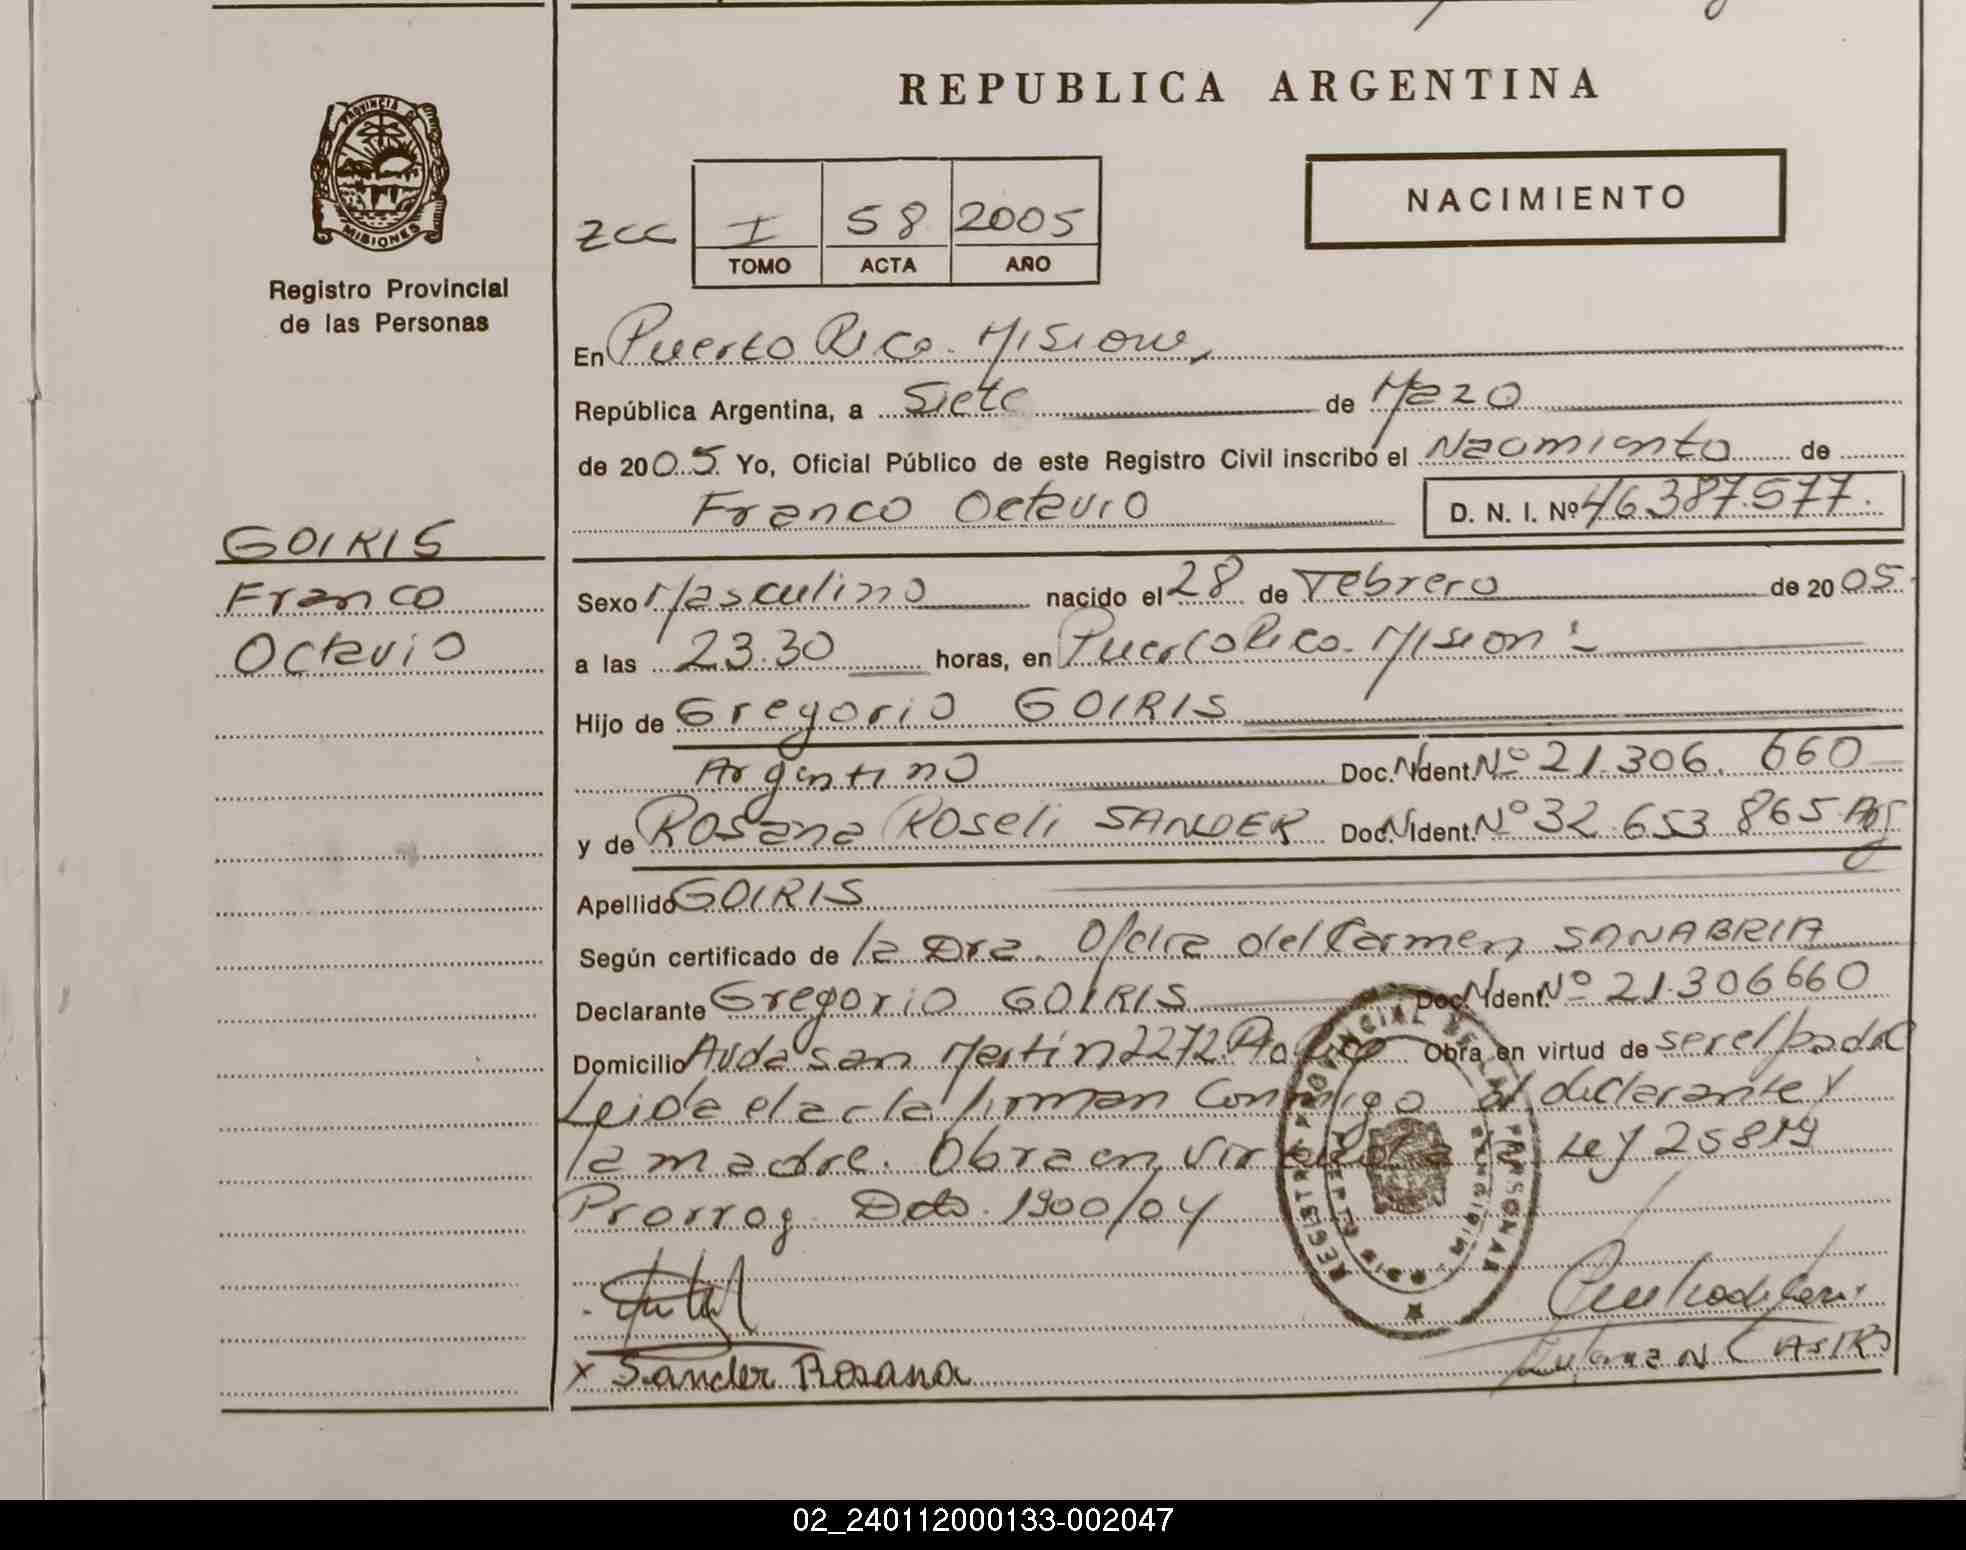 REPUBLICA ARGENTINA
PROVINCIA DE
MISIONES
Registro Provincial
de las Personas
NACIMIENTO
ZCC I 58 2005
TOMO ACTA AÑO
En Puerto Rico. Misiones
República Argentina, a Siete de Mazo
de 2005. Yo, Oficial Público de este Registro Civil inscribo el Nacimiento de
Franco Octavio D. N. I. Nº 46.387.577.
GOIRIS
Franco
Octavio
Sexo Masculino nacido el 28 de Febrero de 2005.
a las 23.30 horas, en Puerto Rico. Mision
Hijo de Gregorio GOIRIS
Argentino Doc. Ident. Nº 21.306.660
y de Rosana Roseli SANDER Doc. Ident. Nº 32.653.865 Arg
Apellido GOIRIS
Según certificado de la Dra. Ofelia del Carmen SANABRIA
Declarante Gregorio GOIRIS Doc. Ident. Nº 21.306660
Domicilio Avda San Martín 2272 Obra en virtud de ser el padre
Leida el acta firman conmigo el declarante y
la madre. Obra en Ley 25819
Prorrog. Dcto. 1900/04
REGISTRO PROVINCIAL DE LAS PERSONAS
x Sander Rosana
02_240112000133-002047